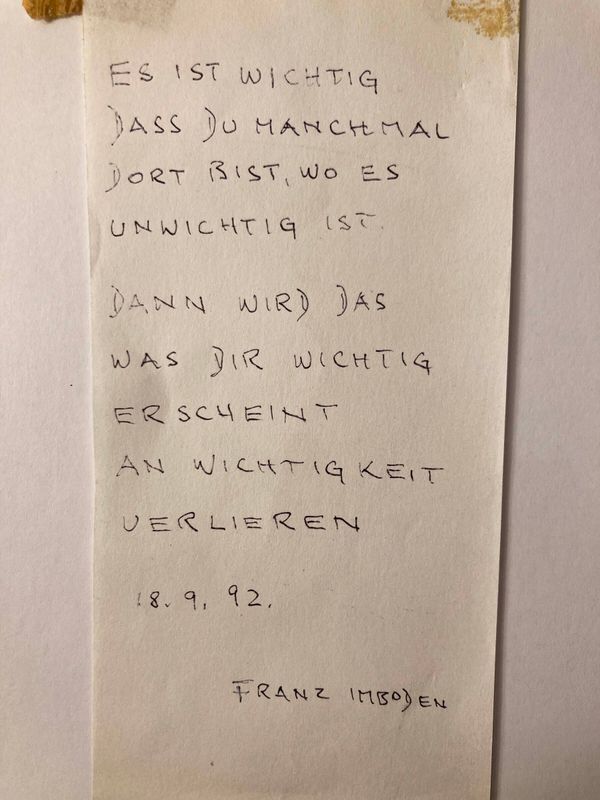 ES IST WICHTIG
DASS DU MANCHMAL
DORT BIST, WO ES
UNWICHTIG IST.
DANN WIRD DAS
WAS DIR WICHTIG
ERSCHEINT
AN WICHTIGKEIT
VERLIEREN
18. 9. 92.
FRANZ IMBODEN